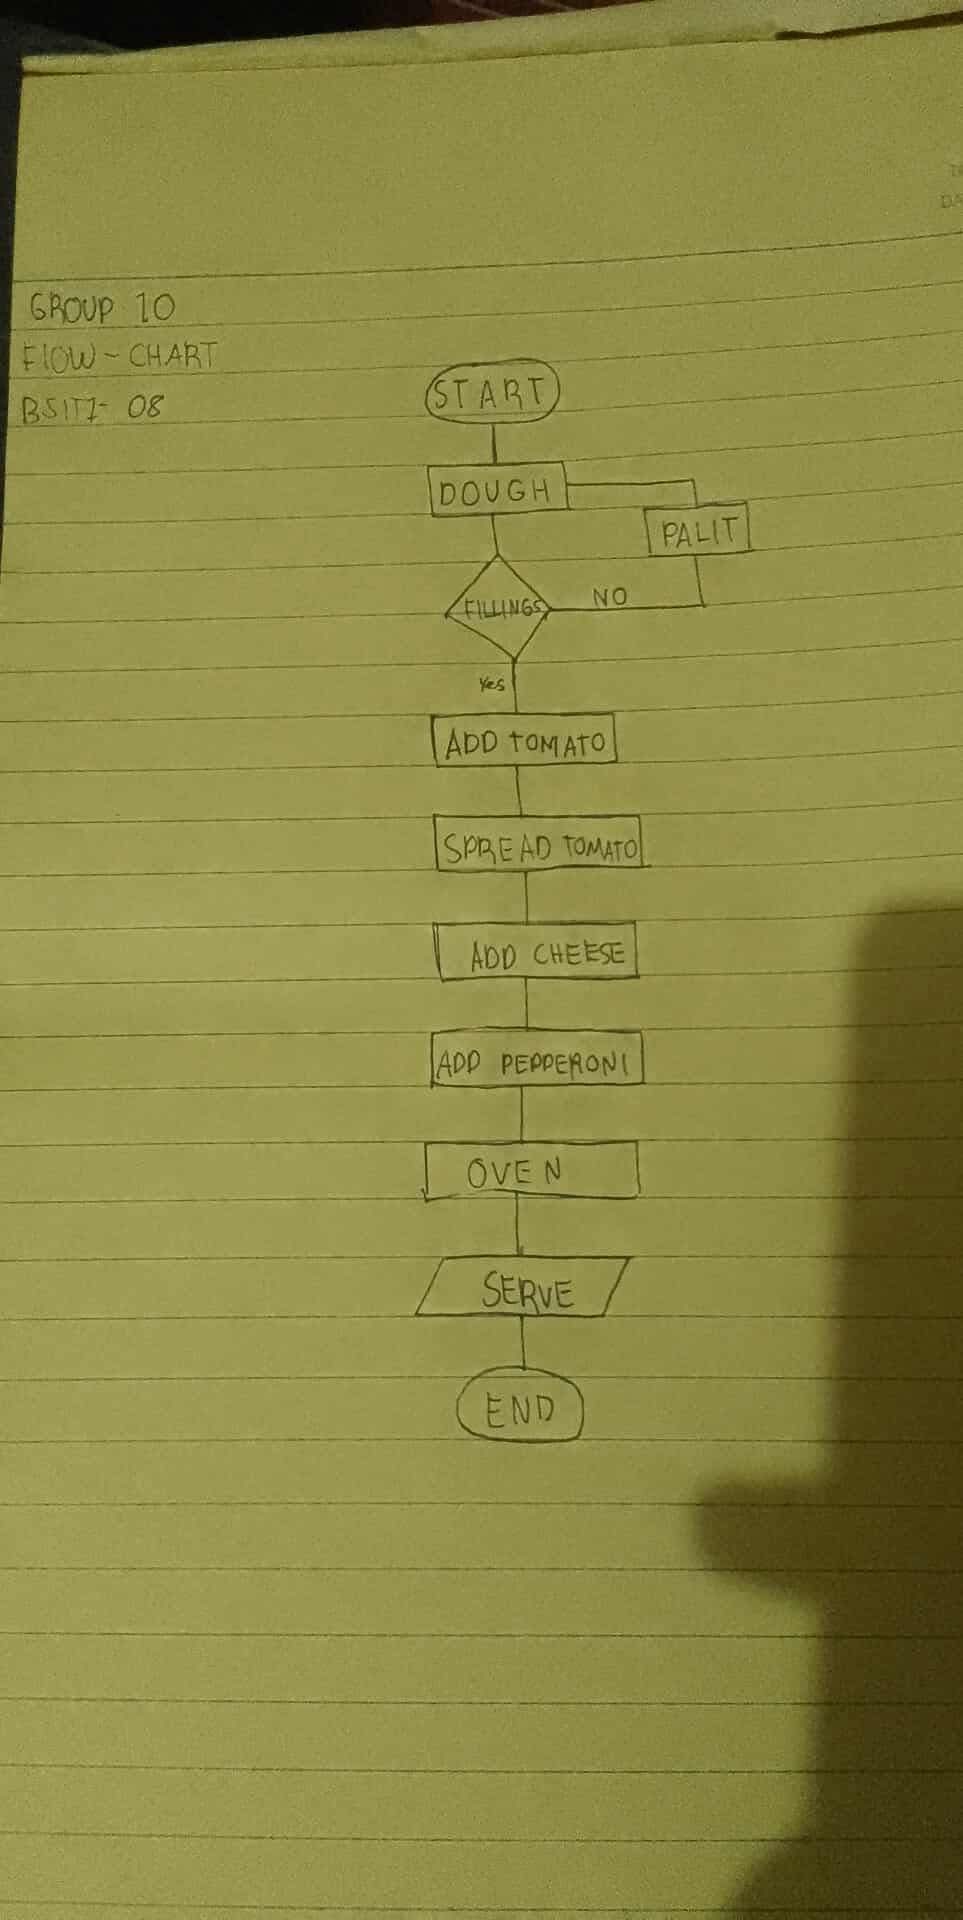 GROUP 10
FLOW-CHART
BSIT1-08
START
DOUGH
PALIT
FILLINGS
NO
Yes
ADD TOMATO
SPREAD TOMATO
ADD CHEESE
ADD PEPPERONI
OVEN
SERVE
END